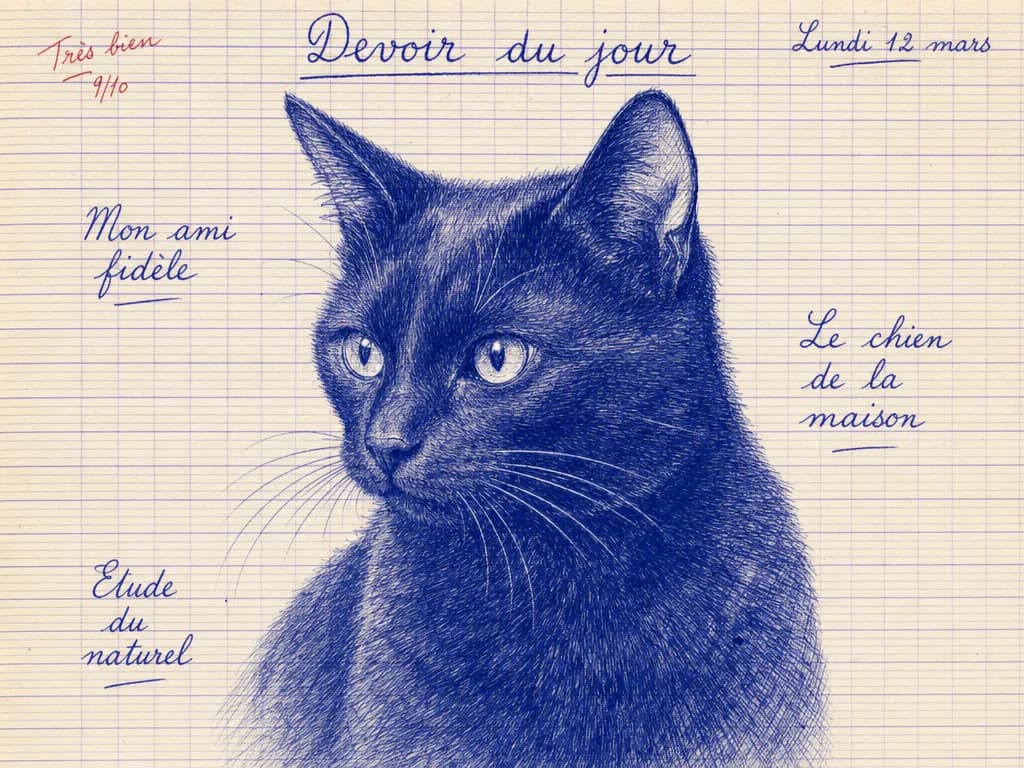 Très bien
9/10
Devoir du jour
Lundi 12 mars
Mon ami
fidèle
Le chien
de la
maison
Etude
du
naturel